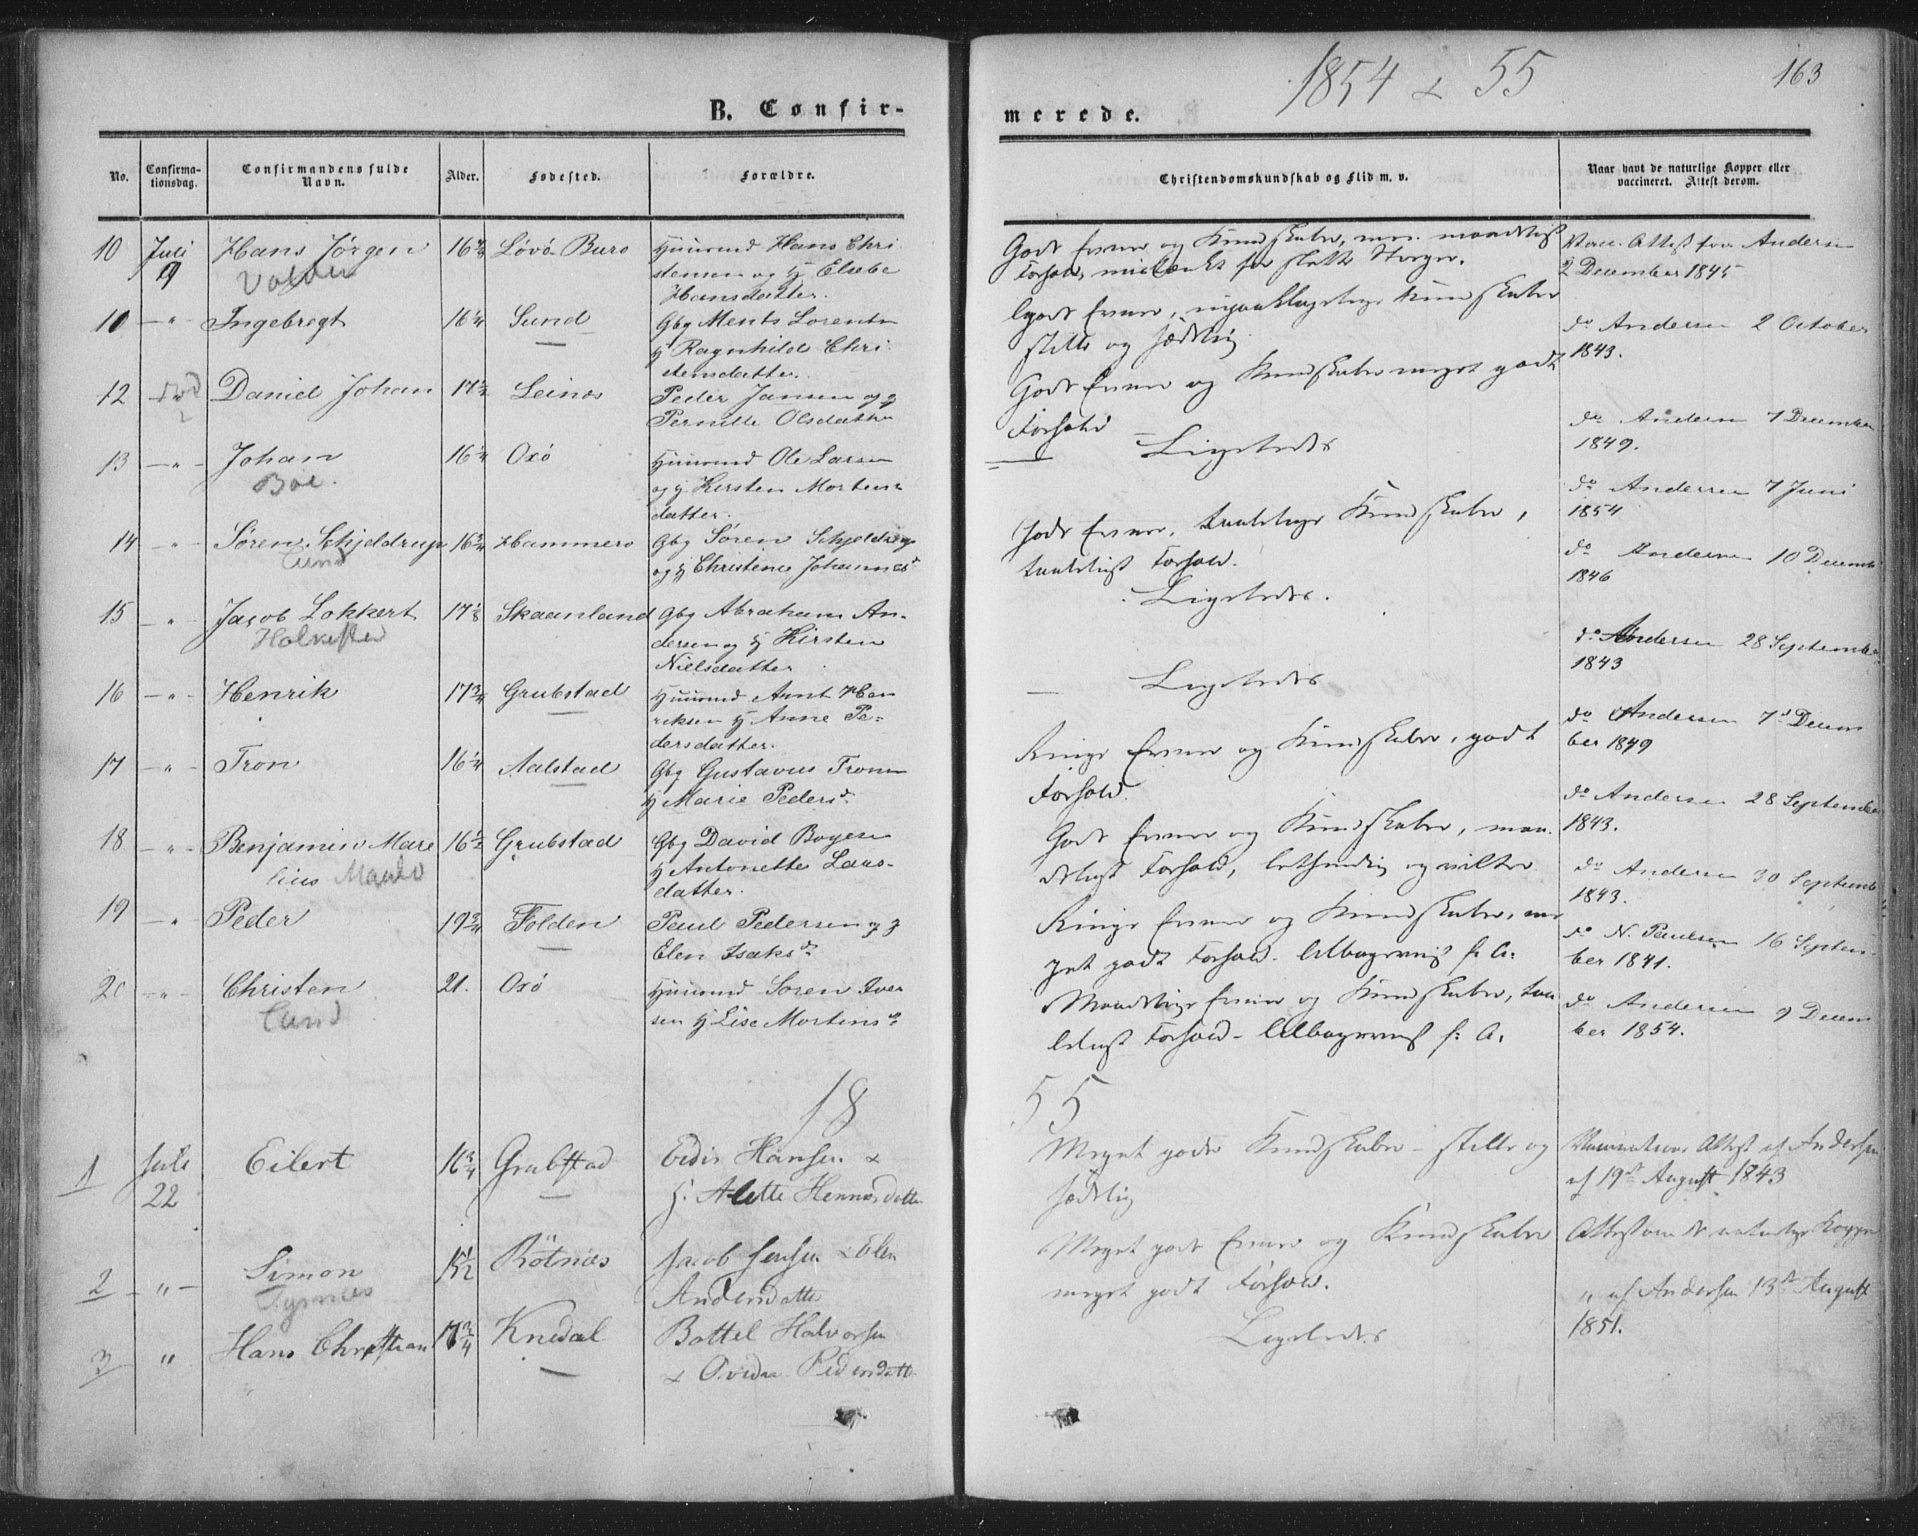 1854 & 55
163
B. Confir-
merede.
No.
Confirma-
tionsdag.
Confirmandens fulde
Navn.
Alder.
Fødested.
Forældre.
Christendomskundskab og Flid m. v.
Naar havt de naturlige Kopper eller
vaccineret. Attest derom.
10 Juli 9 Hans Jørgen 16 Løvö Buro Huusmd Hans Chri
stensen og H Elsebe
Hansdatter.
Godt Forhold
Vacc. Attest fra Andersen
2 December 1845
10 - " Ingebregt 16 1/4 Sund Gbg Ments Lorents
H Ragnhild Chri
stensdatter.
stille og sædelig
do Andersen 2 October
1843.
12 Daniel Johan 17 1/2 Leines Peder Jansen og H
Pernille Olsdatter
Godt Evner og Kundskaber meget godt
Forhold
do Andersen 7 December
1849.
13 - " - Johan 16 1/4 Oxö Huusmd Ole Larsen
Boe.
og H Kirsten Mortens
datter.
Ligeledes
do Andersen 7 Juni
1854
14 - " Sören Schjeldrup 16 3/4 Hammerö Gbg Sören Schjeldrup
Lund
og H Christence Johannesd
Gode Evner, taalelige Kundskaber,
taaleligt Forhold.
do Andersen 10 Decemb
1846
15 - " Jacob Lokkert 17 1/8 Skaanland Gbg Abraham An-
dersen og H Kirsten
Nielsdatter
Ligeledes.
do Andersen 28 September
1843
16 - " Henrik 17 3/4 Grubstad Huusmd Arnt Hen
riksen H Anne Pe-
dersdatter.
Ligeledes
do Andersen 7d Decem
ber 1849
17 - " Tron 16 1/4 Aalstad Gbg Gustavus Tronsen
H Marie Pedersd.
Ringe Evner og Kundskaber, godt
Forhold.
do Andersen 28 September
1843.
18 - " - Benjamin Mare 16 1/2 Grubstad Gbg David Boyesen
lius
H Antonette Lars-
datter.
Gode Evner og Kundskaber, maa-
deligt Forhold, letsindig og
do Andersen 30 Septemb
1843.
19 - " Peder 19 3/4 Folden Paul Pedersen og H
Elen Isaksd.
Ringe Evner og Kundskaber, me
get godt Forhold.
do N. Paulsen 16 Septem
ber 1841.
20 - " - Christen 21. Oxö Huusmd Sören Iver
Lund
sen H Lise Mortensd.
Maadelige Evner og Kundskaber, taa
leligt Forhold -
do Andersen 9 Decem
ber 1854.
18
55
1 Juli 22 Eilert 16 3/4 Grubstad Hansen &
H. Alette
Meget gode Kundskaber - stille og
sædelig
Vaccinations Attest af Andersen
af 19de August 1843
2 " - Simon 15 1/2 Rötnæs Jacob Jensen & Elen
Andersdatter
Meget gode Evner og Kundskaber
meget godt Forhold.
Attest om de naturlige Kopper
" af Andersen 13de August
1851.
3 " Hans Christian 17 3/4 Knedal Bottel Halvorsen
& Pedersdatt
Ligeledes